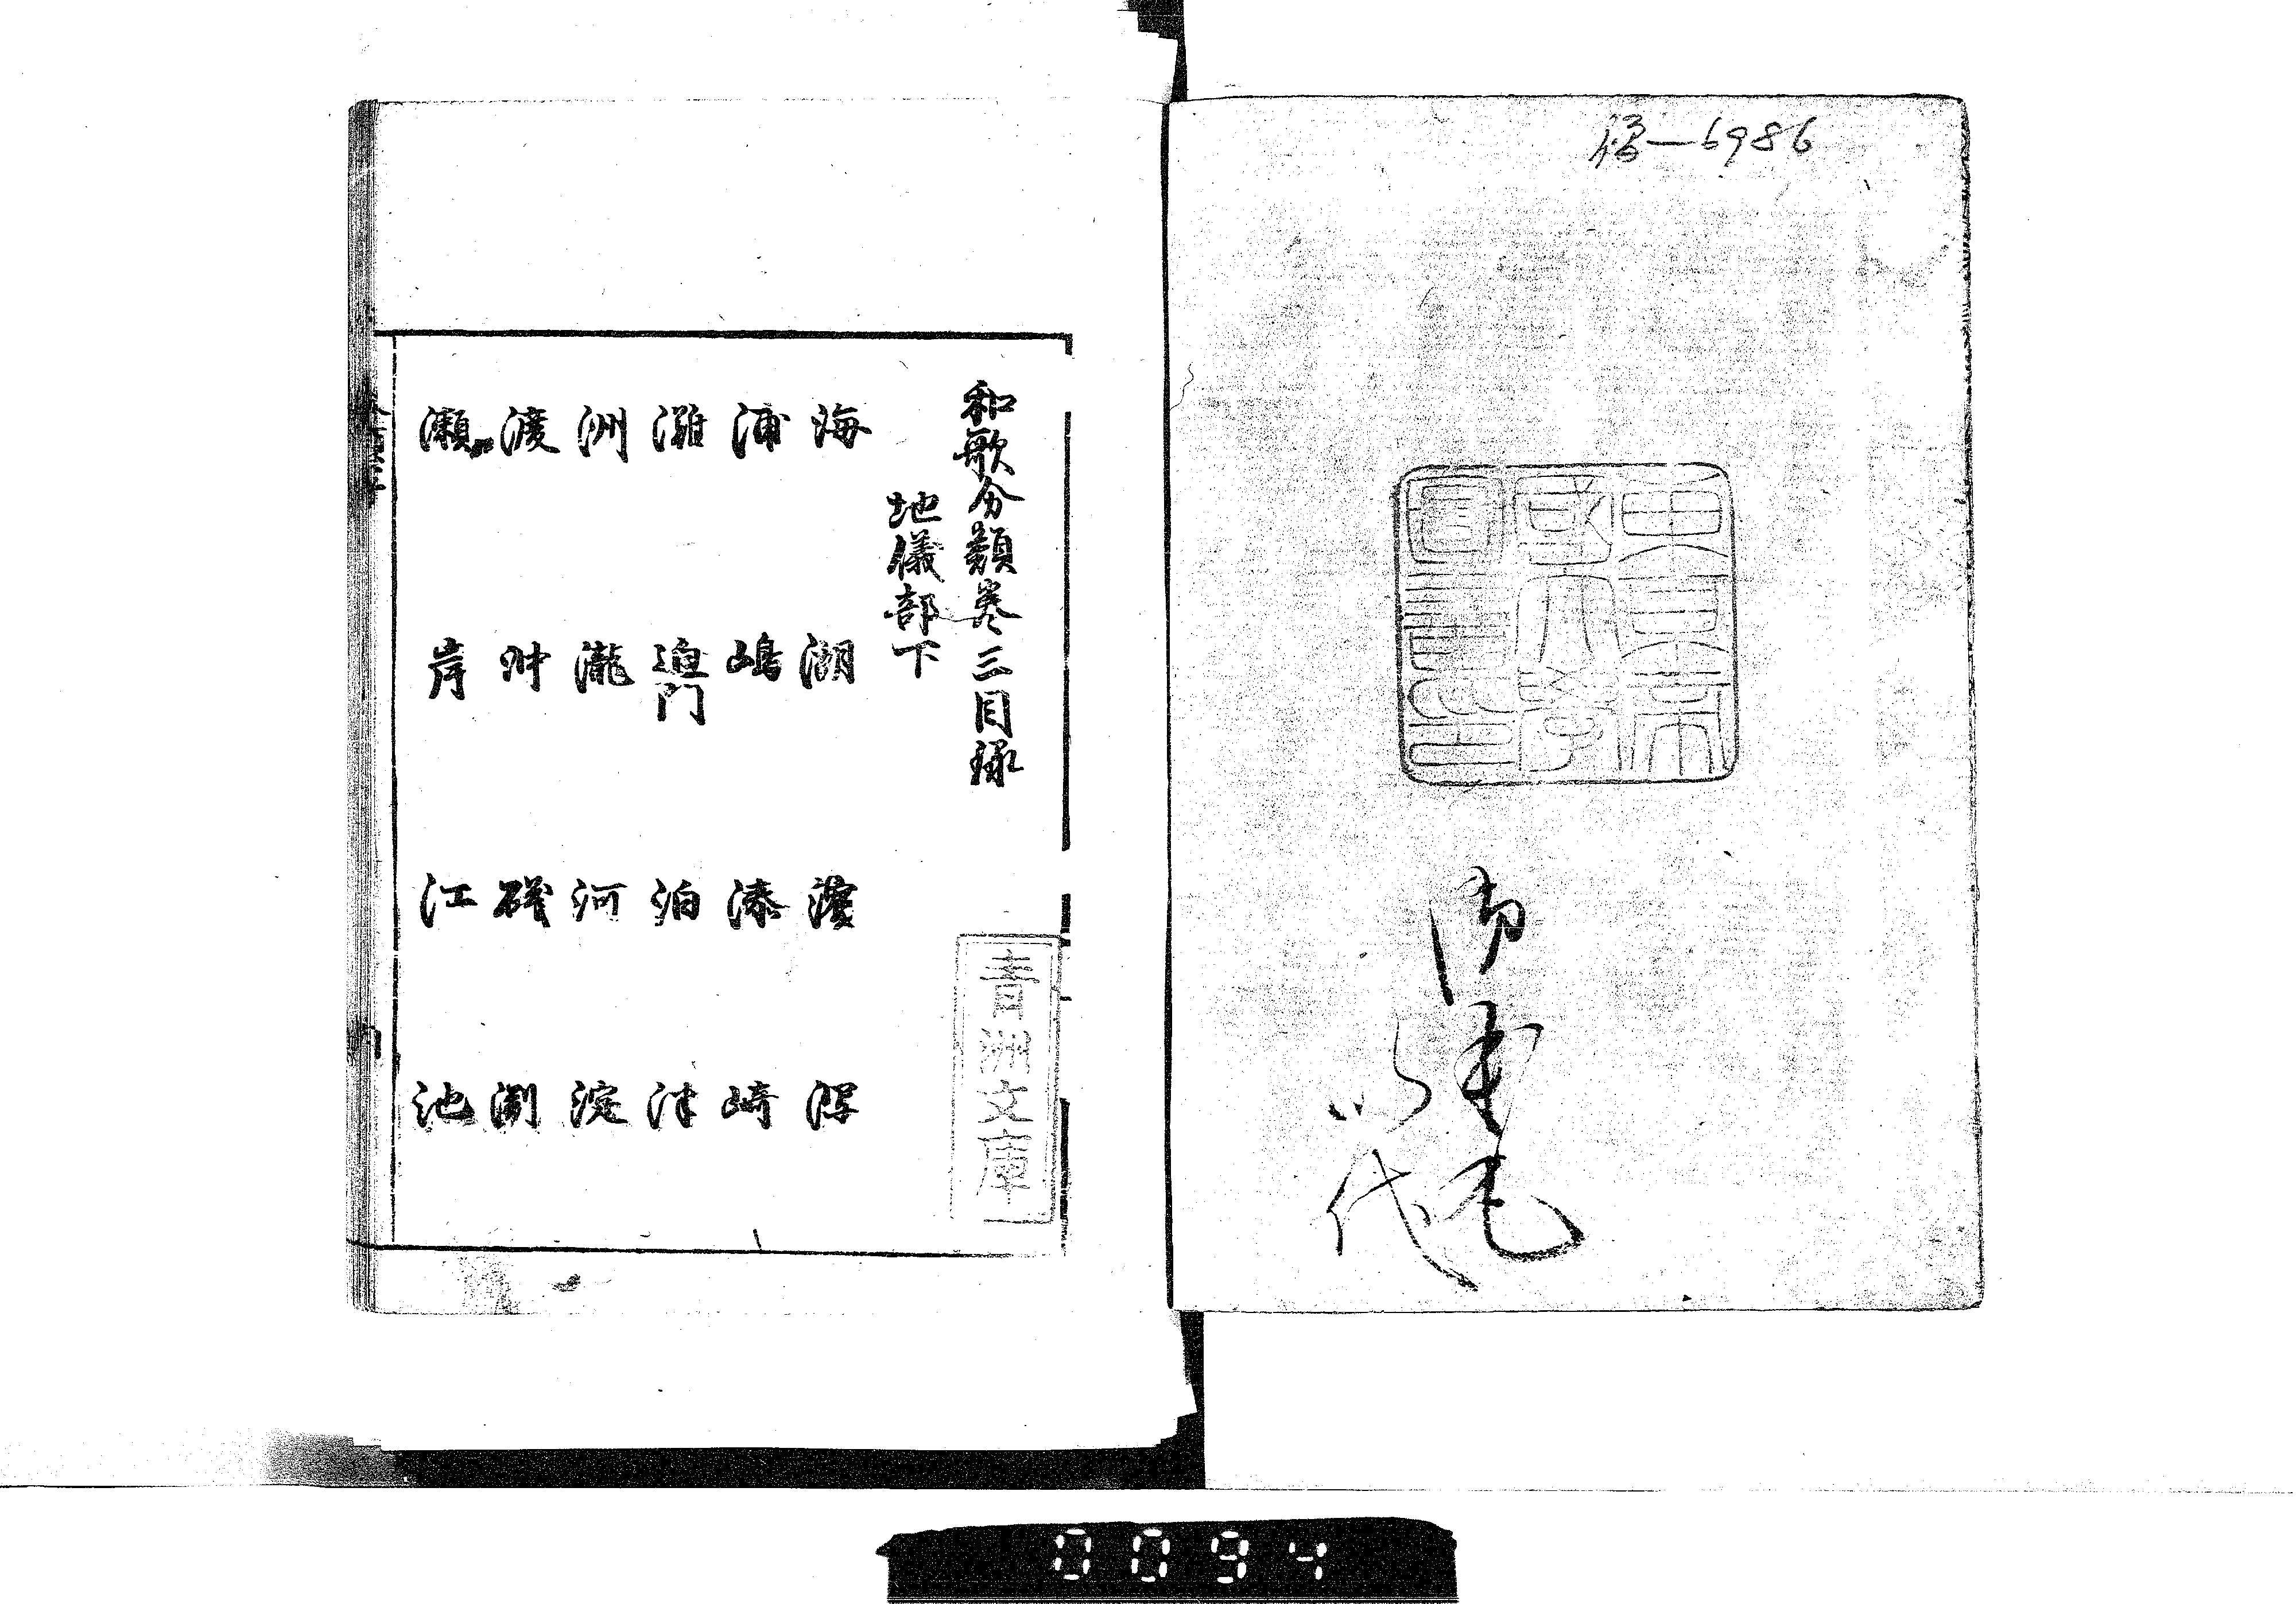 6986
東京帝
國大學
圖書印
和歌分類巻三目録
地儀部下
海 湖 濱
浦 嶋 湊 崎
灘 迫門 泊 津
洲 瀧 河 淀
渡 磯 淵
瀬 岸 江 池
青洲文庫
0094